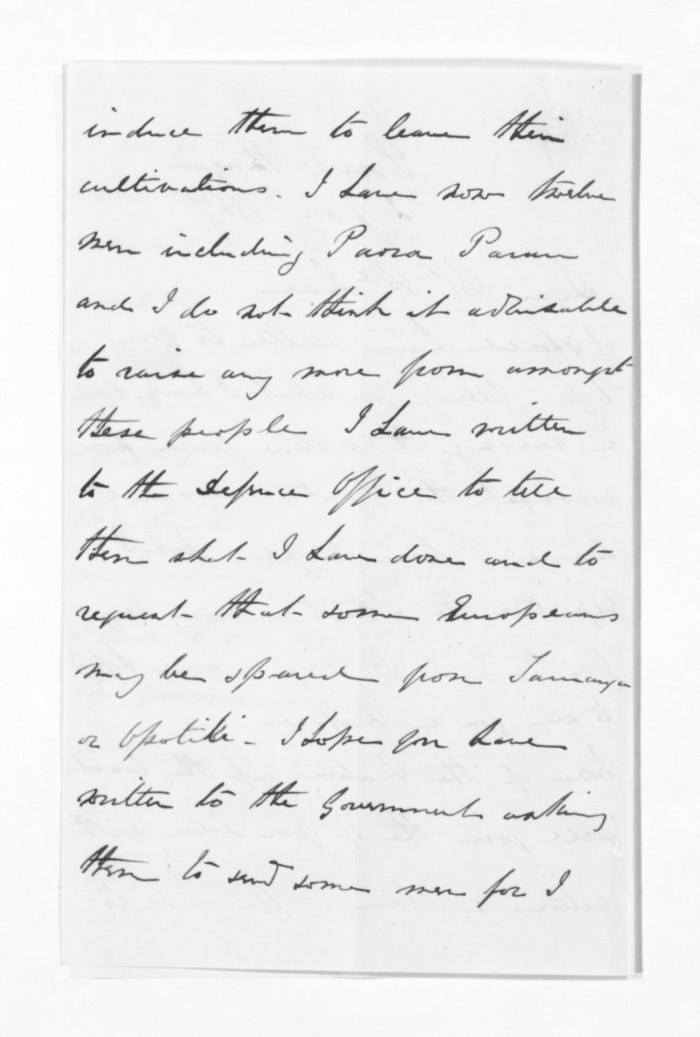 induce them to leave their
cultivations. I have now twelve
men including Paora Parau
and I do not think it advisable
to raise any more from amongst
these people I have written
to the Defence Office to tell
them what I have done and to
request that some Europeans
may be spared from Tauranga
or Opotiki - I hope you have
written to the Government asking
them to send some men for I